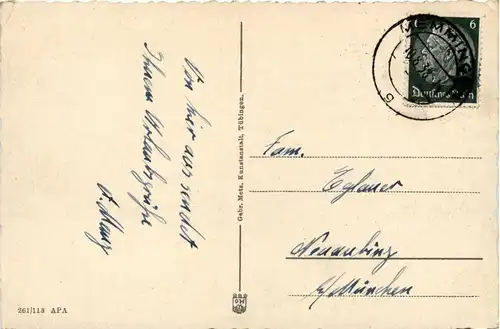 Von hier aus sendet
Ihnen Urlaubsgrüße
Gebr. Metz, Kunstanstalt, Tübingen.
261/113 APA
MEMMING
6
Deutsches Reich
Fam.
Eglauer
Neuaubing
b/München